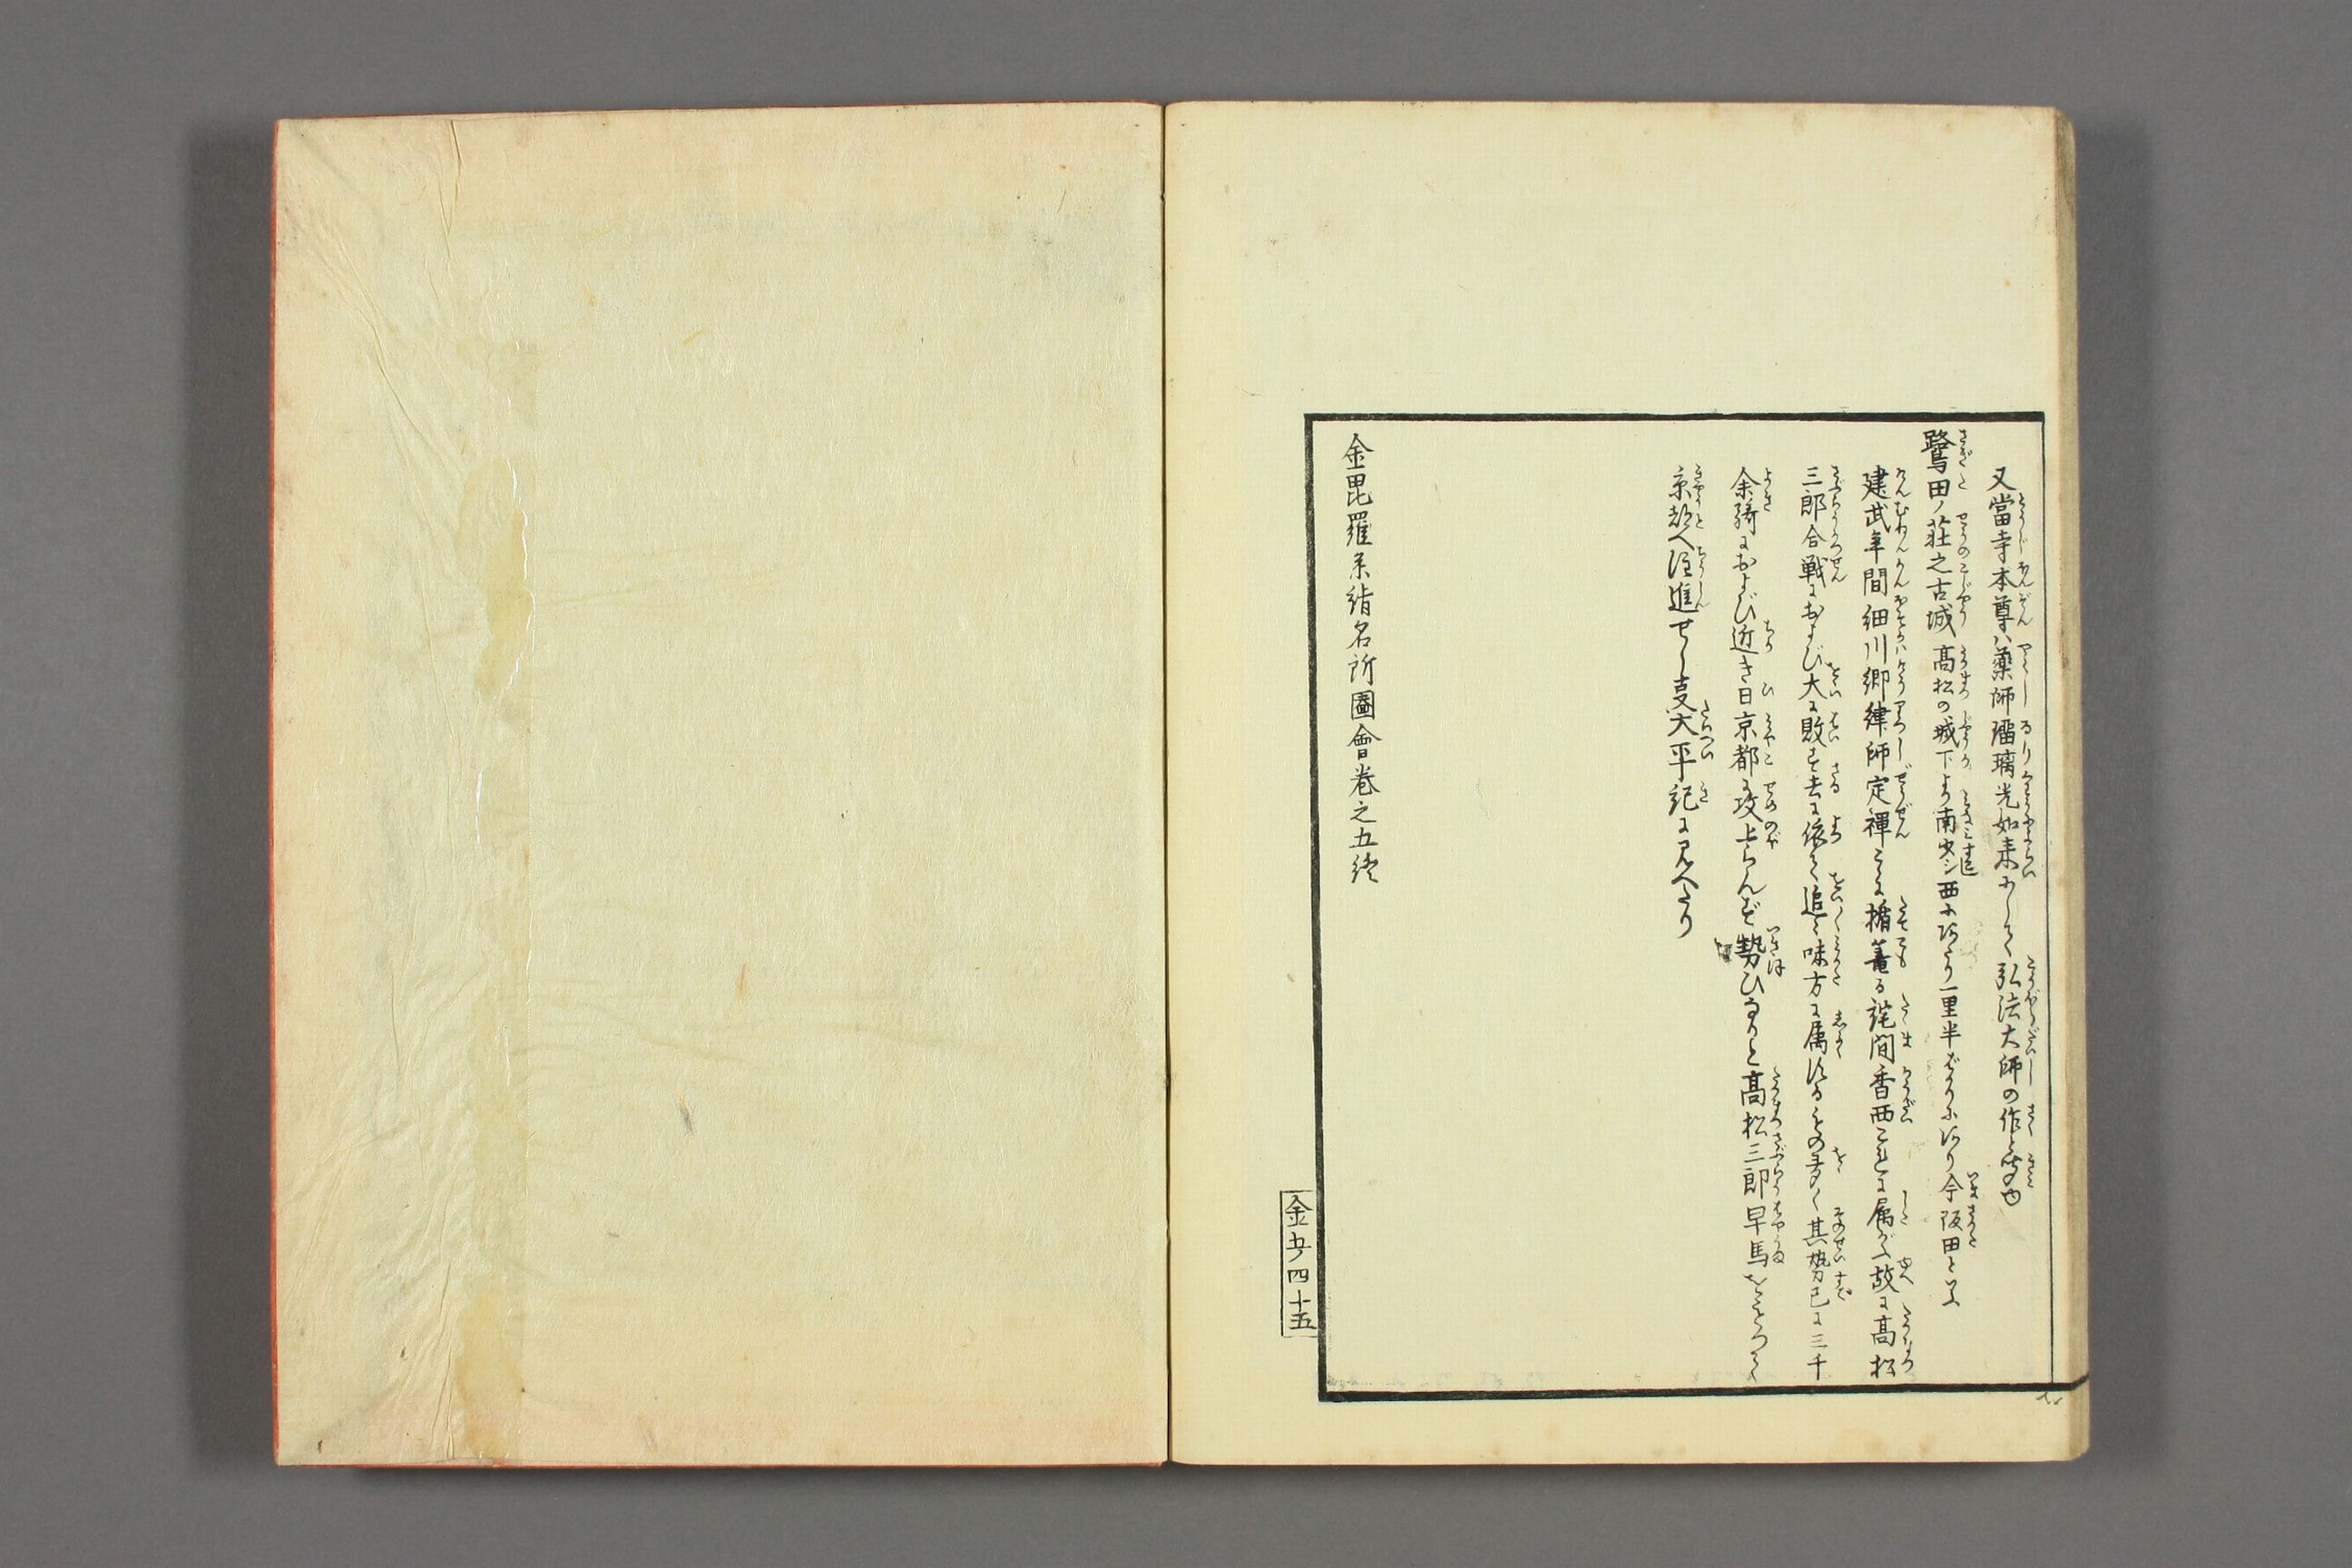 又當寺本尊ハ薬師瑠璃光如来にして弘法大師の作と聞ゆ
鷺田ノ荘之古城 高松の城下より南少シ西にあたり一里半ばかりにあり今阪田といふ
建武年間細川郷律師定禅こゝに楯篭る詫間香西これに属ふ故に高松
三郎合戦におよび大に敗走去に依て追々味方に属けるもの多く其勢已に三千
余騎におよび近き日京都に攻上らんず勢ひなりと高松三郎早馬をもつて
京都へ注進せし㕝大平記に見へたり
金毘羅参詣名所圖會巻之五終
金五ノ四十五